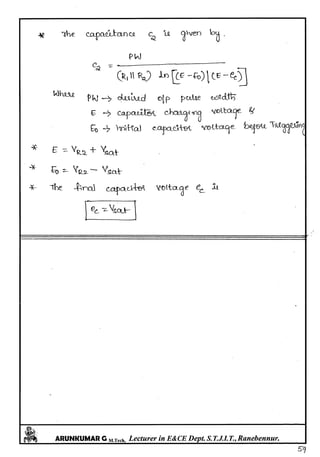 * The capacitance C₂ is given by,
C₂ = PW / (R₁ ll R₂) ln [(E - E₀) | (E - e_c)]
Where PW → desired o/p pulse width
E → capacitor charging voltage &
E₀ → Initial capacitor voltage before Triggering
* E = V_R2 + V_sat
* E₀ = V_R2 - V_sat
* The final capacitor voltage e_c is
e_c = V_sat
ARUNKUMAR G M.Tech, Lecturer in E&CE Dept. S.T.J.I.T., Ranebennur.
59